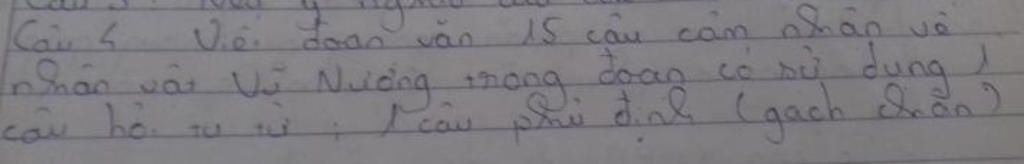 Câu 4 Viế đoạn văn 15 câu cảm nhận về
nhân vật Vũ Nương trong đoạn có sử dụng 1
câu hỏi tu từ, 1 câu phủ định (gạch chân)